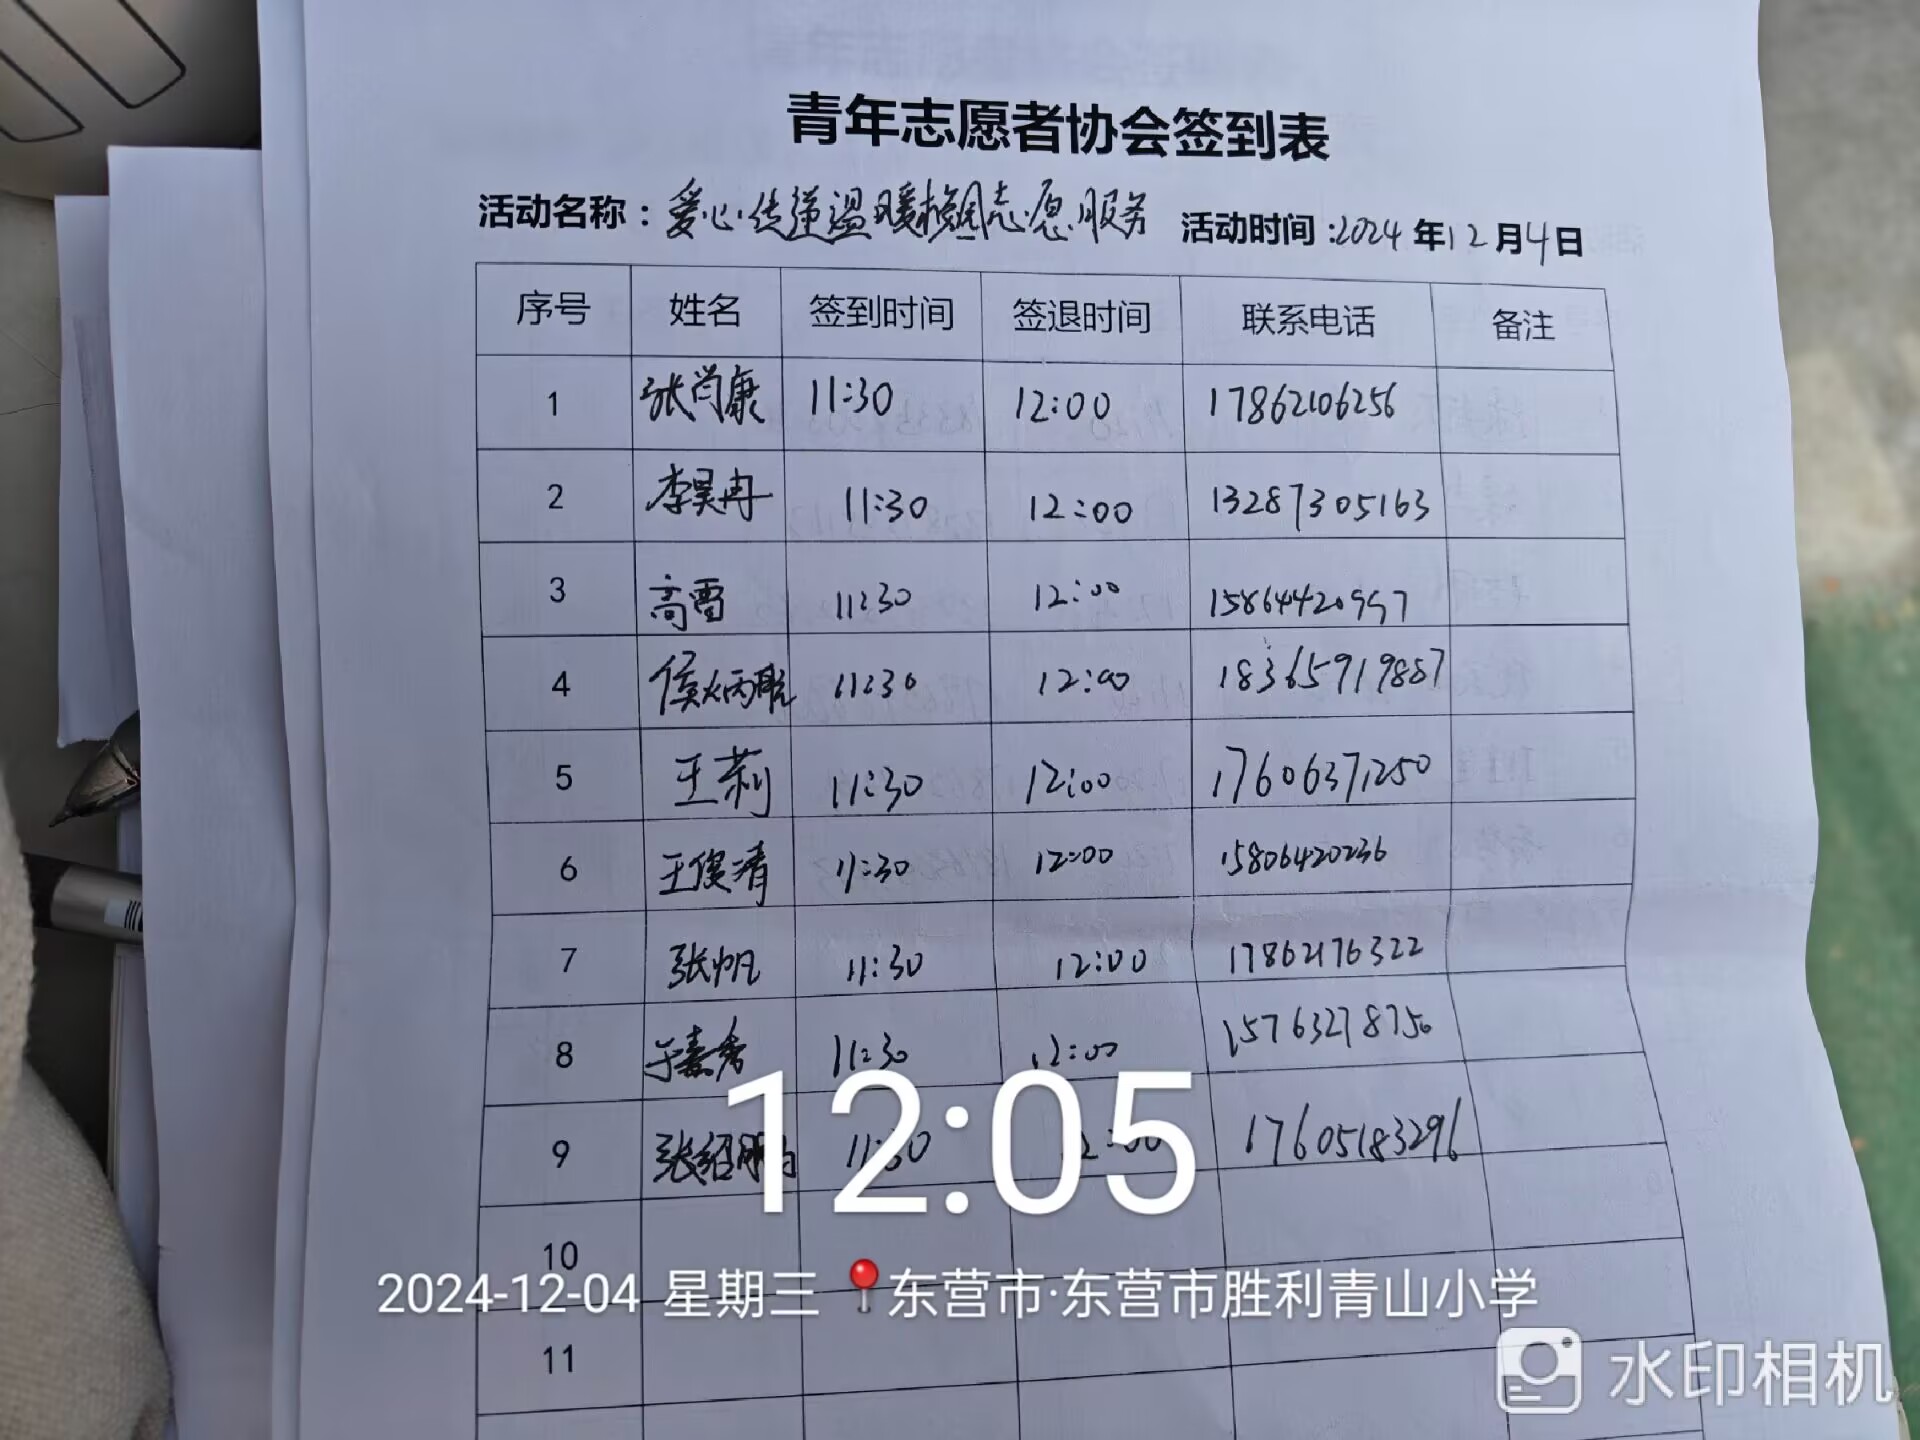 青年志愿者协会签到表
活动名称：爱心传递温暖校园志愿服务 活动时间：2024年12月4日
序号 姓名 签到时间 签退时间 联系电话 备注
1 张肖康 11:30 12:00 17862106256
2 李昊冉 11:30 12:00 13287305163
3 高雷 11:30 12:00 15864420997
4 侯炳 11:30 12:00 18365919887
5 王莉 11:30 12:00 17606371250
6 王俊清 11:30 12:00 15806420236
7 张帆 11:30 12:00 17862176322
8 于秀 11:30 12:00 15763278750
9 张绍鹏 11:30 12:00 17605183296
12:05
10
2024-12-04 星期三 东营市·东营市胜利青山小学
11
水印相机